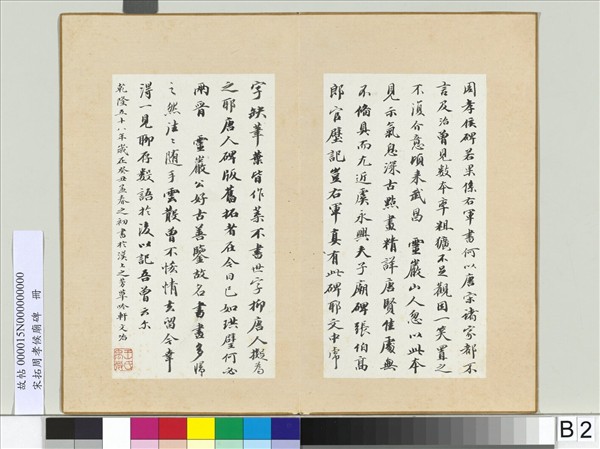 周孝侯碑若果係右軍書何以唐宋諸家都不
言及治曾見數本率粗獷不足觀因一笑置之
不復介意頃來武昌 靈巖山人忽以此本
見示氣息深古點畫精詳唐賢佳處無
不備具而尤近虞永興夫子廟碑張伯高
郎官壁記豈右軍真有此碑耶文中虎
字缺筆葉皆作不書世字抑唐人為
之耶唐人碑版舊拓者在今日已如珙璧何必
兩晉 靈巖公好古善鑒故名書畫多歸
之然隨手雲散曾不恡情去留今幸
得一見聊存數語於後以記吾曾云尔
乾隆五十八年歲在癸丑孟春之初書於漢上之芳草吟軒文治
故帖000015N000000000
宋拓周孝侯廟碑 冊
B2